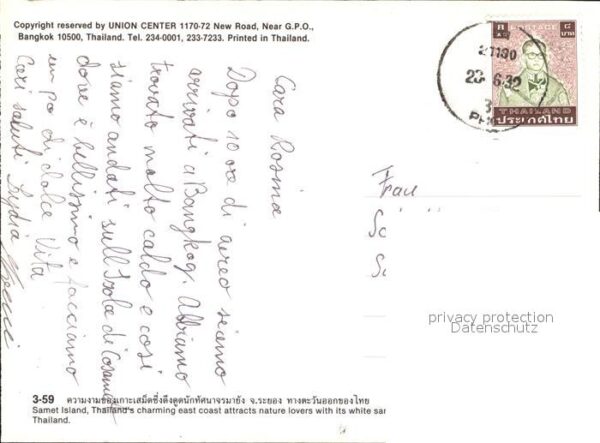 Copyright reserved by UNION CENTER 1170-72 New Road, Near G.P.O.,
Bangkok 10500, Thailand. Tel. 234-0001, 233-7233. Printed in Thailand.
POSTAGE
THAILAND
ประเทศไทย
21190
Cara Rosina
Dopo 10 ore di aereo siamo
arrivati a Bangkog. Abbiamo
trovato molto caldo e così
siamo andati sull'Isola di
dove è bellissimo e facciamo
un po di dolce Vita
Cari saluti Lydia
Frau
privacy protection
Datenschutz
3-59 ความงามของเกาะเสม็ดซึ่งดึงดูดนักทัศนาจรมายัง จ.ระยอง ทางตะวันออกของไทย
Samet Island, Thailand's charming east coast attracts nature lovers with its white
Thailand.